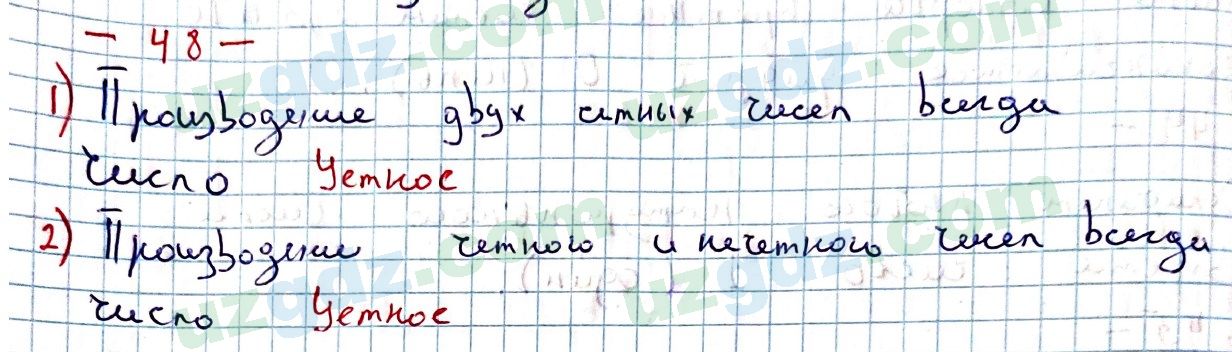 - 48 -
1) Произведение двух четных чисел всегда
число Четное
2) Произведение четного и нечетного чисел всегда
число Четное
uzgdz.com
uzgdz.com
uzgdz.com
uzgdz.com